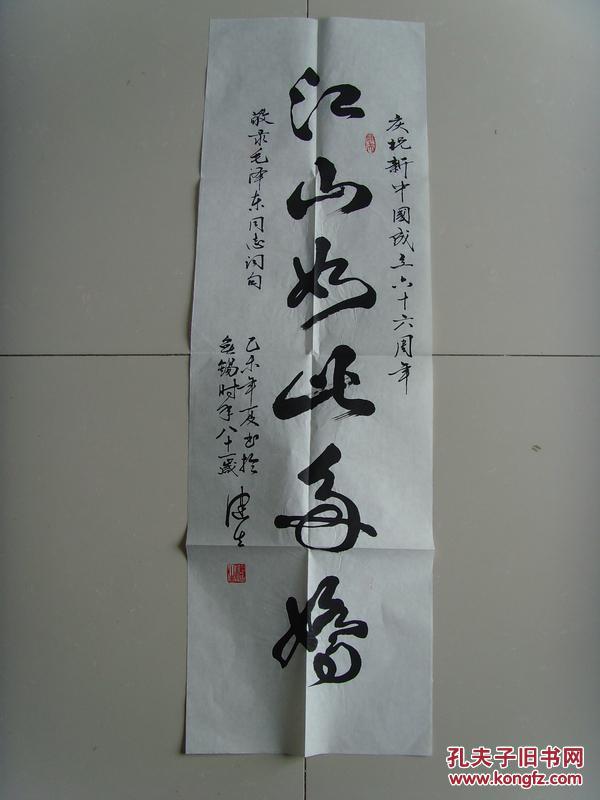 庆祝新中國成立六十六周年
江山如此多娇
敬录毛泽东同志词句
乙未年夏书於
无锡时年八十一歲
建生
孔夫子旧书网
www.kongfz.com